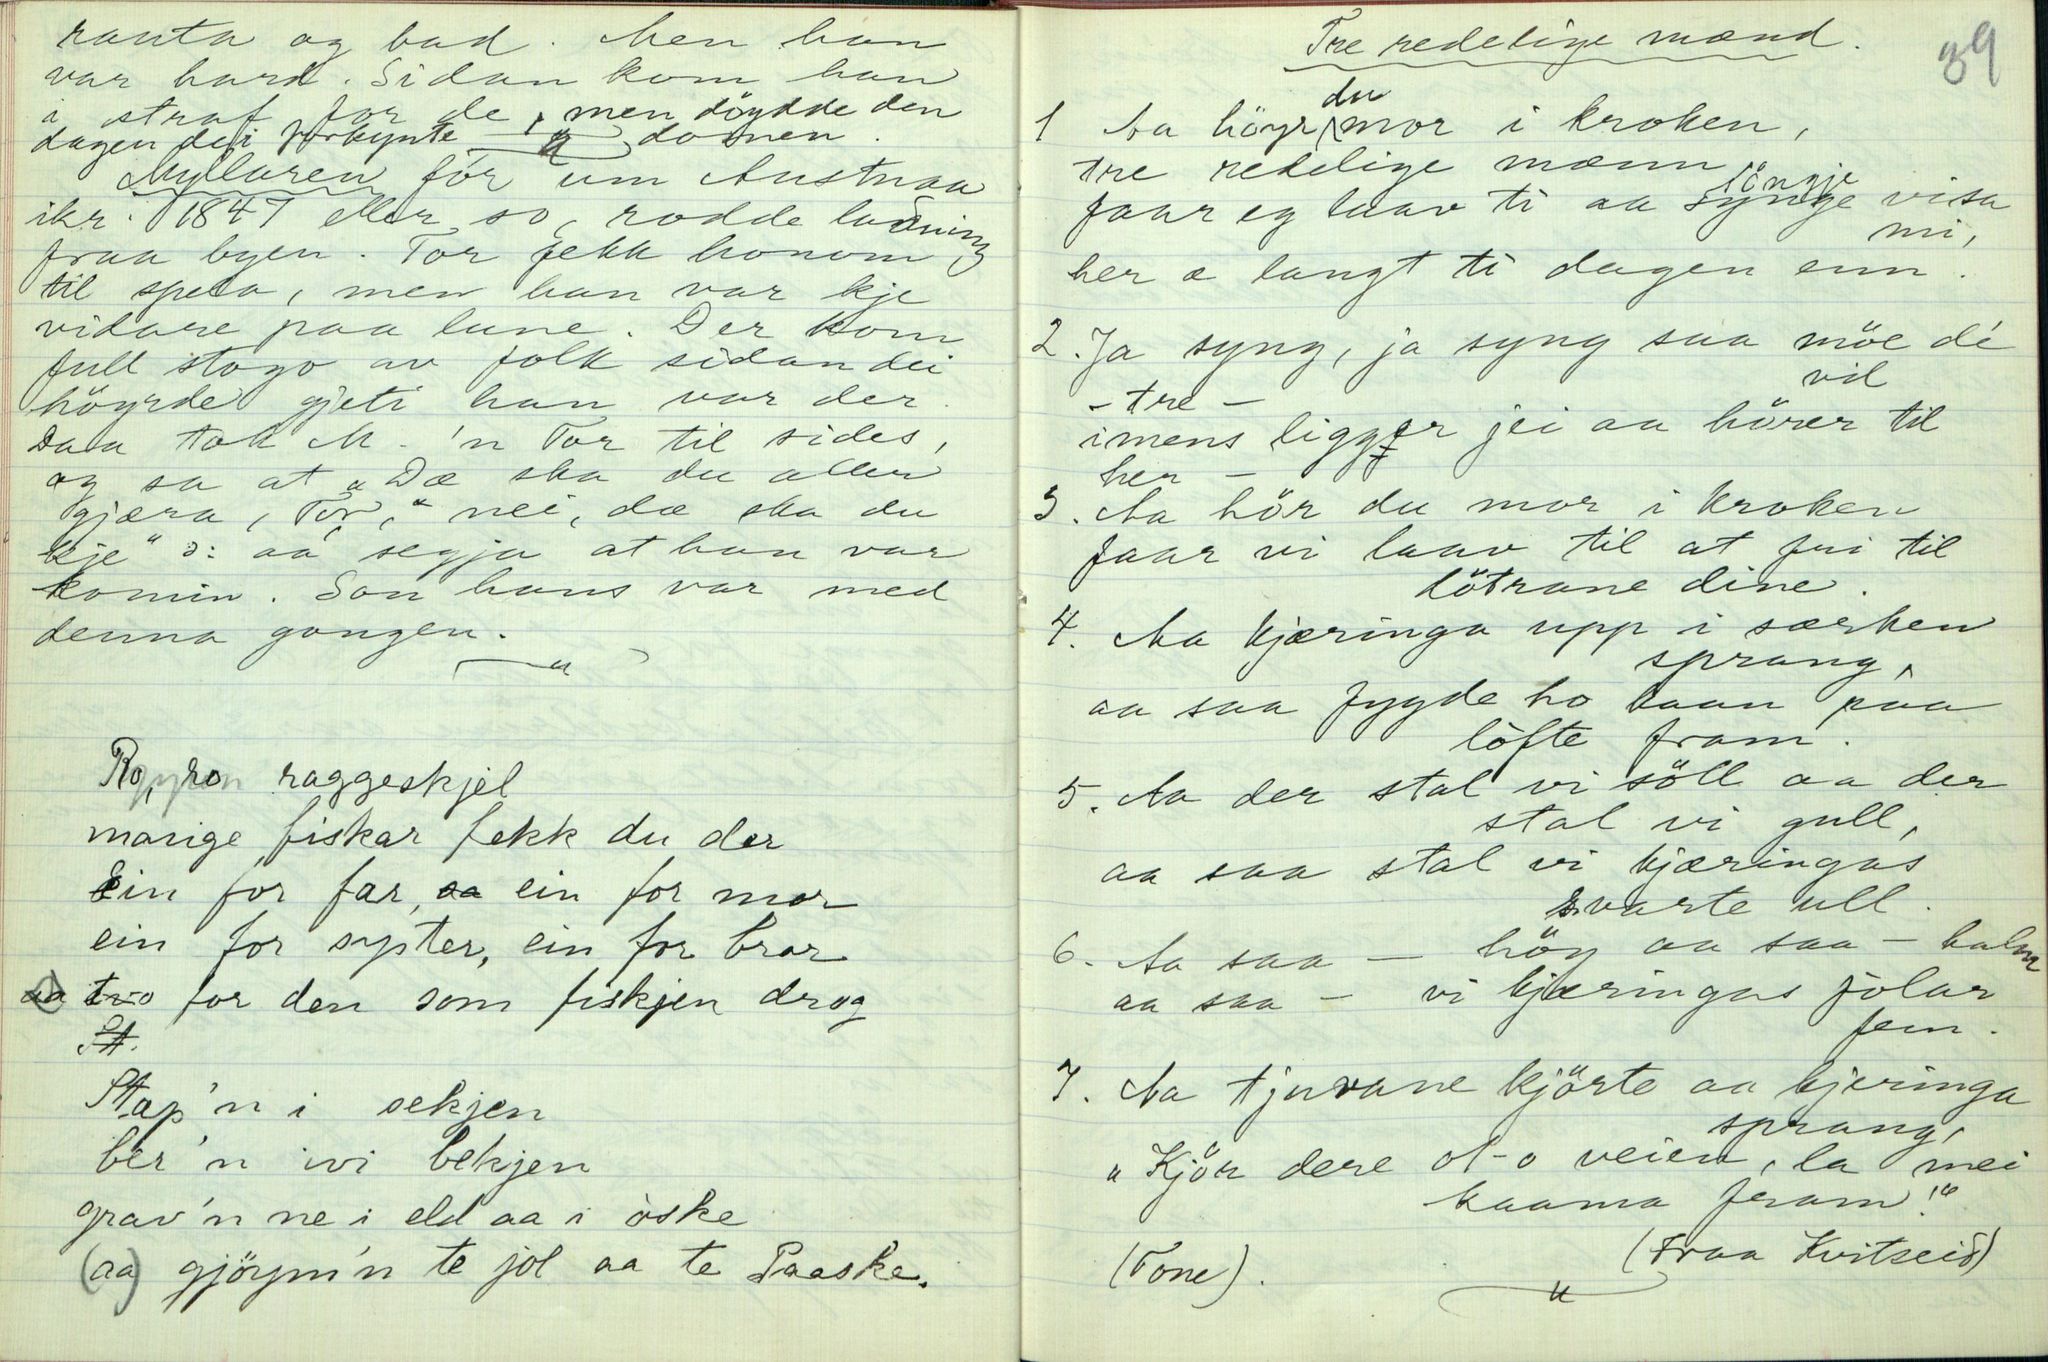 ranta og bad. Men han
var hard. Sidan kom han
i straf for de, men döydde den
dagen dei forkynte domen.
Myllaren fór um Austnaa
ikr. 1847 eller so, rodde ladning
fraa byen. Tor fekk honom
til spela, men han var kje
vidare paa lune. Der kom
full stogo av folk sidan dei
höyrde gjeti han var der.
Daa tok M. 'n Tor til sides,
og sa at "Dæ ska du aller
gjæra, Tor," nei, dæ ska du
kje" ɔ: aa segja at han var
komin. Son hans var med
denna gongen.
Ro, ro raggeskjel
mange fiskar fekk du der
Ein for far, aa ein for mor
ein for syster, ein for bror
aa tvo for den som fiskjen drog
St.
Stap'n i sekjen
ber'n ivi bekjen
grav'n ne i eld aa i òske
(aa) gjöym'n te jol aa te Paaske.
39
Tre redelige mænd.
1 Aa höyr du mor i kroken,
tre redelige mænn
söngje
faar eg laav ti aa synge visa
mi,
her æ langt ti dagen enn.
2. Ja syng, ja syng saa möe dé
vil
- tre -
imens ligger jei aa hörer til
her -
3. Aa hör du mor i kroken
faar vi laav til at fri til
dötrane dine.
4. Aa kjæringa upp i særken
sprang,
aa saa fygde ho baan paa
löfte fram.
5. Aa der stal vi söll aa der
stal vi gull,
aa saa stal vi kjæringas
svarte ull.
6. Aa saa - höy aa saa - halm
aa saa - vi kjæringas fòlar
fem.
7. Aa tjuvane kjörte aa kjeringa
sprang,
"Kjör dere ot-o veien, la mei
kaama fram!"
(Tone). (Fraa Kvitseid)